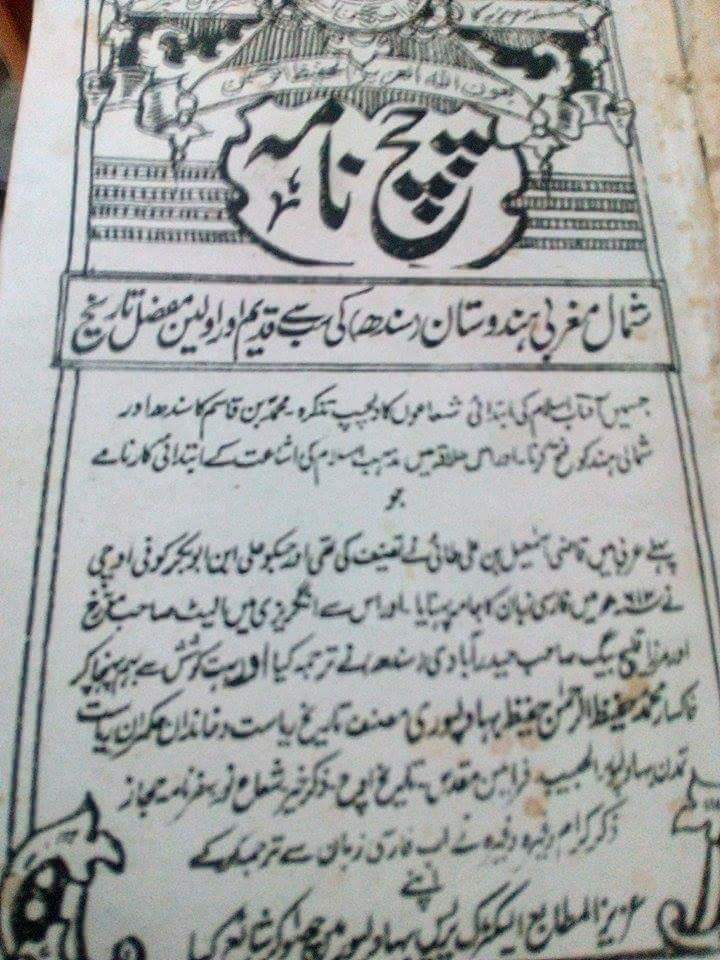 بعون اللہ العزیز الحفیظ الرحمٰن
چچ نامہ
شمال مغربی ہندوستان (سندھ) کی سب سے قدیم اور اولین مفصل تاریخ
جسمیں آفتاب اسلام کی ابتدائی شعاعوں کا دلچسپ تذکرہ۔ محمد بن قاسم کا سندھ اور
شمالی ہند کو فتح کرنا۔ اور اس علاقہ میں مذہب اسلام کی اشاعت کے ابتدائی کارنامے
جو
پہلے عربی میں قاضی اسمٰعیل بن علی طائی نے تصنیف کی تھی اور جسکو علی ابن ابوبکر کوفی اوچی
نے ۶۱۳ھ میں فارسی زبان کا جامہ پہنایا۔ اور اس سے انگریزی میں الیٹ صاحب مورخ
اور مرزا قلیچ بیگ صاحب حیدرآبادی (سندھ) نے ترجمہ کیا اور بہت کوشش سے بہم پہنچا کر
خاکسار محمد حفیظ الرحمٰن حفیظ بہاولپوری مصنف تاریخ ریاست و خاندان حکمران ریاست
تمدن بہاولپور، الحبیب، فرامین مقدس۔ تاریخ اوچ۔ ذکر خیر۔ شعاع نور سفرنامہ حجاز
ذکر کرام وغیرہ وغیرہ نے اب فارسی زبان سے ترجمہ کر کے
اپنے
عزیز المطابع الیکٹرک پریس بہاولپور میں چھپوا کر شائع کیا